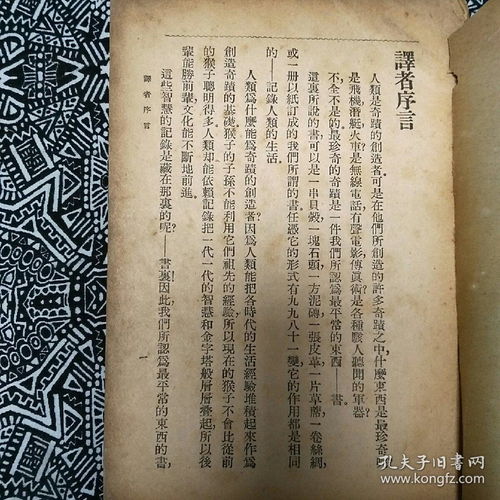 譯者序言
人類是奇蹟的創造者可是在他們所創造的許多奇蹟之中什麼東西是最珍奇的
是飛機潛艇火車是無線電話有聲電影傳眞術是各種駭人聽聞的軍器?
不全不是的最珍奇的奇蹟是一件我們所認爲最平常的東西——書。
這裏所說的書可以是一串貝殼一塊石頭一方泥磚一張皮革一片草蓆一卷絲綢,
或一册以紙訂成的我們所謂的書任憑它的形式有九九八十一變它的作用都是相同
的——記錄人類的生活。
人類爲什麼能爲奇蹟的創造者?因爲人類能把各時代的生活經驗堆積起來作爲
創造奇蹟的基礎猴子的子孫不能利用它們祖先的經驗所以現在的猴子不會比從前
的猴子聰明得多人類却能依賴記錄把一代一代的智慧和金字塔般層層壘起所以後
輩能勝前輩文化能不斷地前進。
這些智慧的記錄是藏在那裏的呢?——書裏因此我們所認爲最平常的東西的書,
譯者序言
一
孔夫子旧书网
kongfz.com